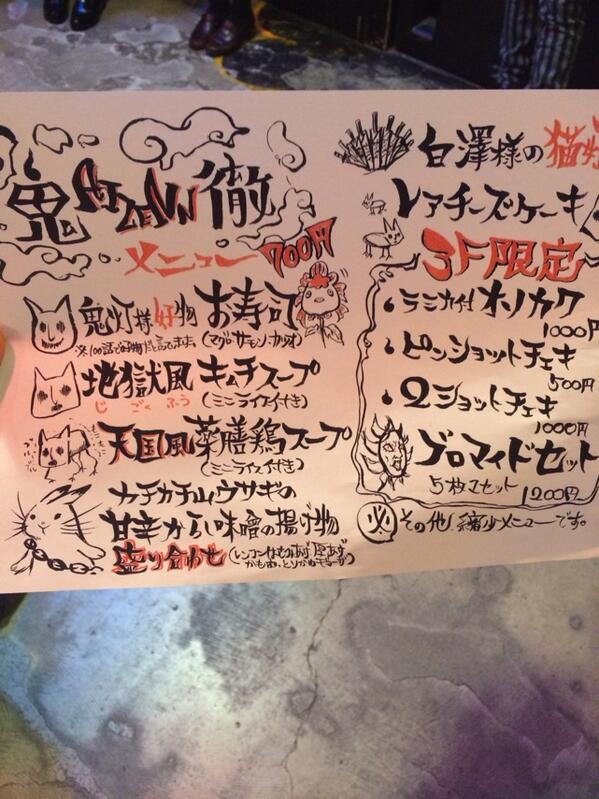 鬼 徹
メニュー 700円
鬼灯様好物 お寿司
地獄風 キムチスープ
じ ごく ふう (ミニライス付き)
天国風薬膳鶏スープ
(ミニライス付き)
カチカチ山ウサギの
甘辛から味噌の揚げ物
盛り合わせ
白澤様の猫
レアチーズケーキ
3F限定
1000円
・ピンショットチェキ
500円
・2ショットチェキ
1000円
ブロマイドセット
5枚1セット 1200円
その他、縮少メニューです。